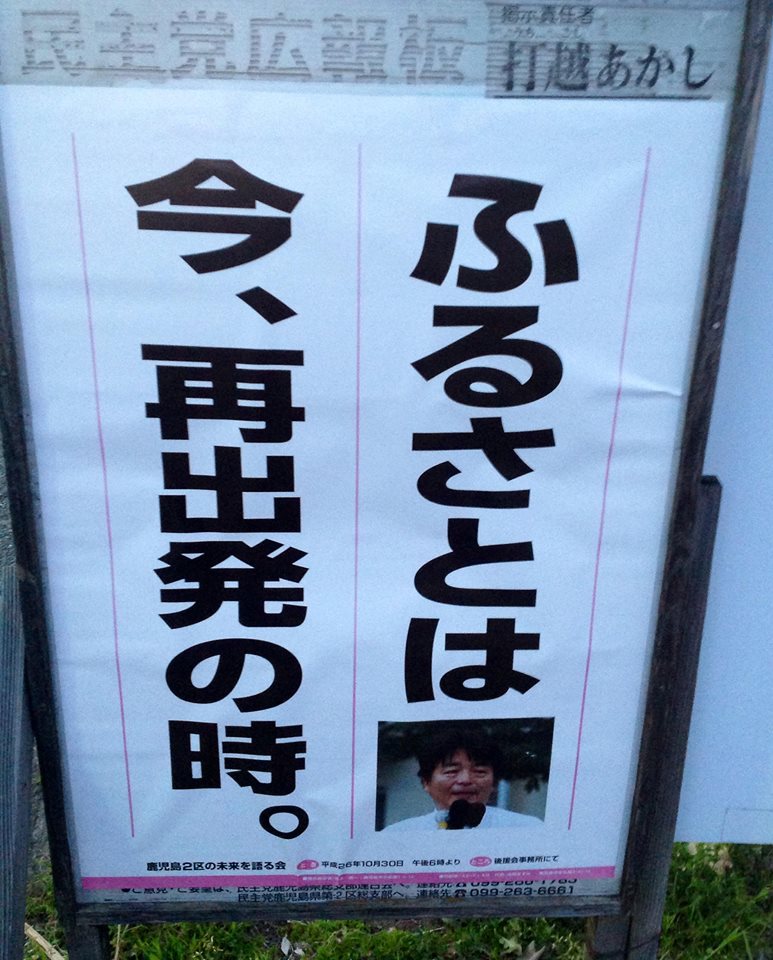 民主党広報板
掲示責任者
うちこし
打越あかし
ふるさとは
今、再出発の時。
鹿児島2区の未来を語る会
とき 平成26年10月30日 午後6時より ところ 後援会事務所にて
●ご意見・ご要望は、民主党鹿児島県総支部連合会へ。連絡先☎099-
民主党鹿児島県第2区総支部へ。連絡先☎099-263-6661